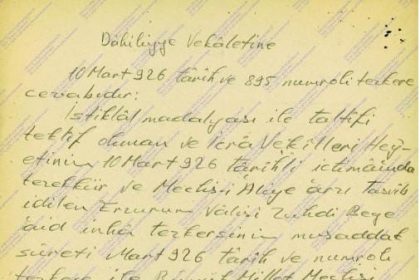 Dâhiliyye Vekâletine
10 Mart 926 târih ve 895 numrolı tezkere
cevabıdır:
İstiklâl madalyası ile taltifi
teklif olunan ve İcrâ Vekilleri Hey'-
etinin 10 Mart 926 târihli ictimâında
tezekkür ve Meclis-i Âliye arzı tasvib
idilen Erzurum Vâlisi Zühdi Beye
âid inha tezkeresinin musaddak
sûreti Mart 926 târih ve numrolı
tezkere ile Büyük Millet Meclisi